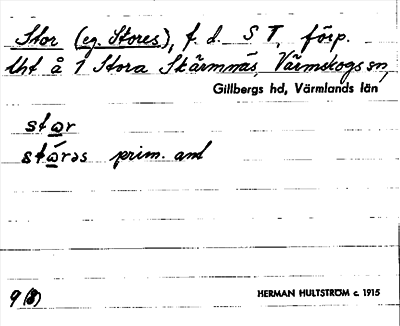 Stor (eg. Stores), f. d. S T, förp.
lht å 1 Stora Skärmnäs, Värmskogs sn,
Gillbergs hd, Värmlands län
star
stárəs prim. ant
9 (8)
HERMAN HULTSTRÖM c. 1915